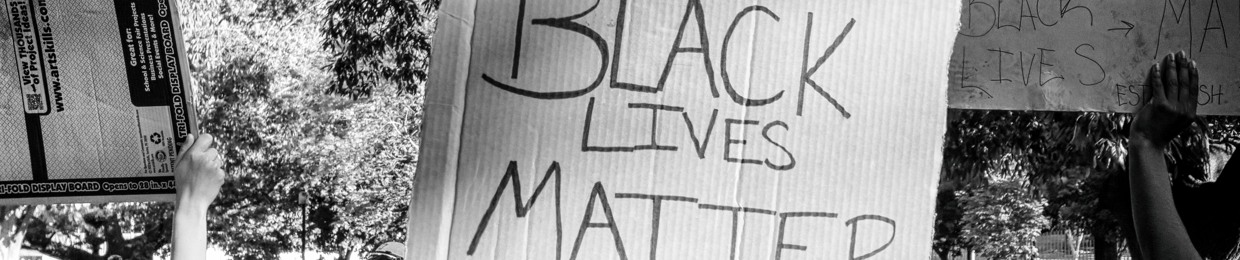 View THOUSANDS
of Project Ideas!
www.artskills.com
Great for:
School & Science Fair Projects
Business Presentations
Social Events & More!
TRI-FOLD DISPLAY BOARD
TRI-FOLD DISPLAY BOARD Opens to
BLACK
LIVES
MATTER
BLACK → MA
LIVES